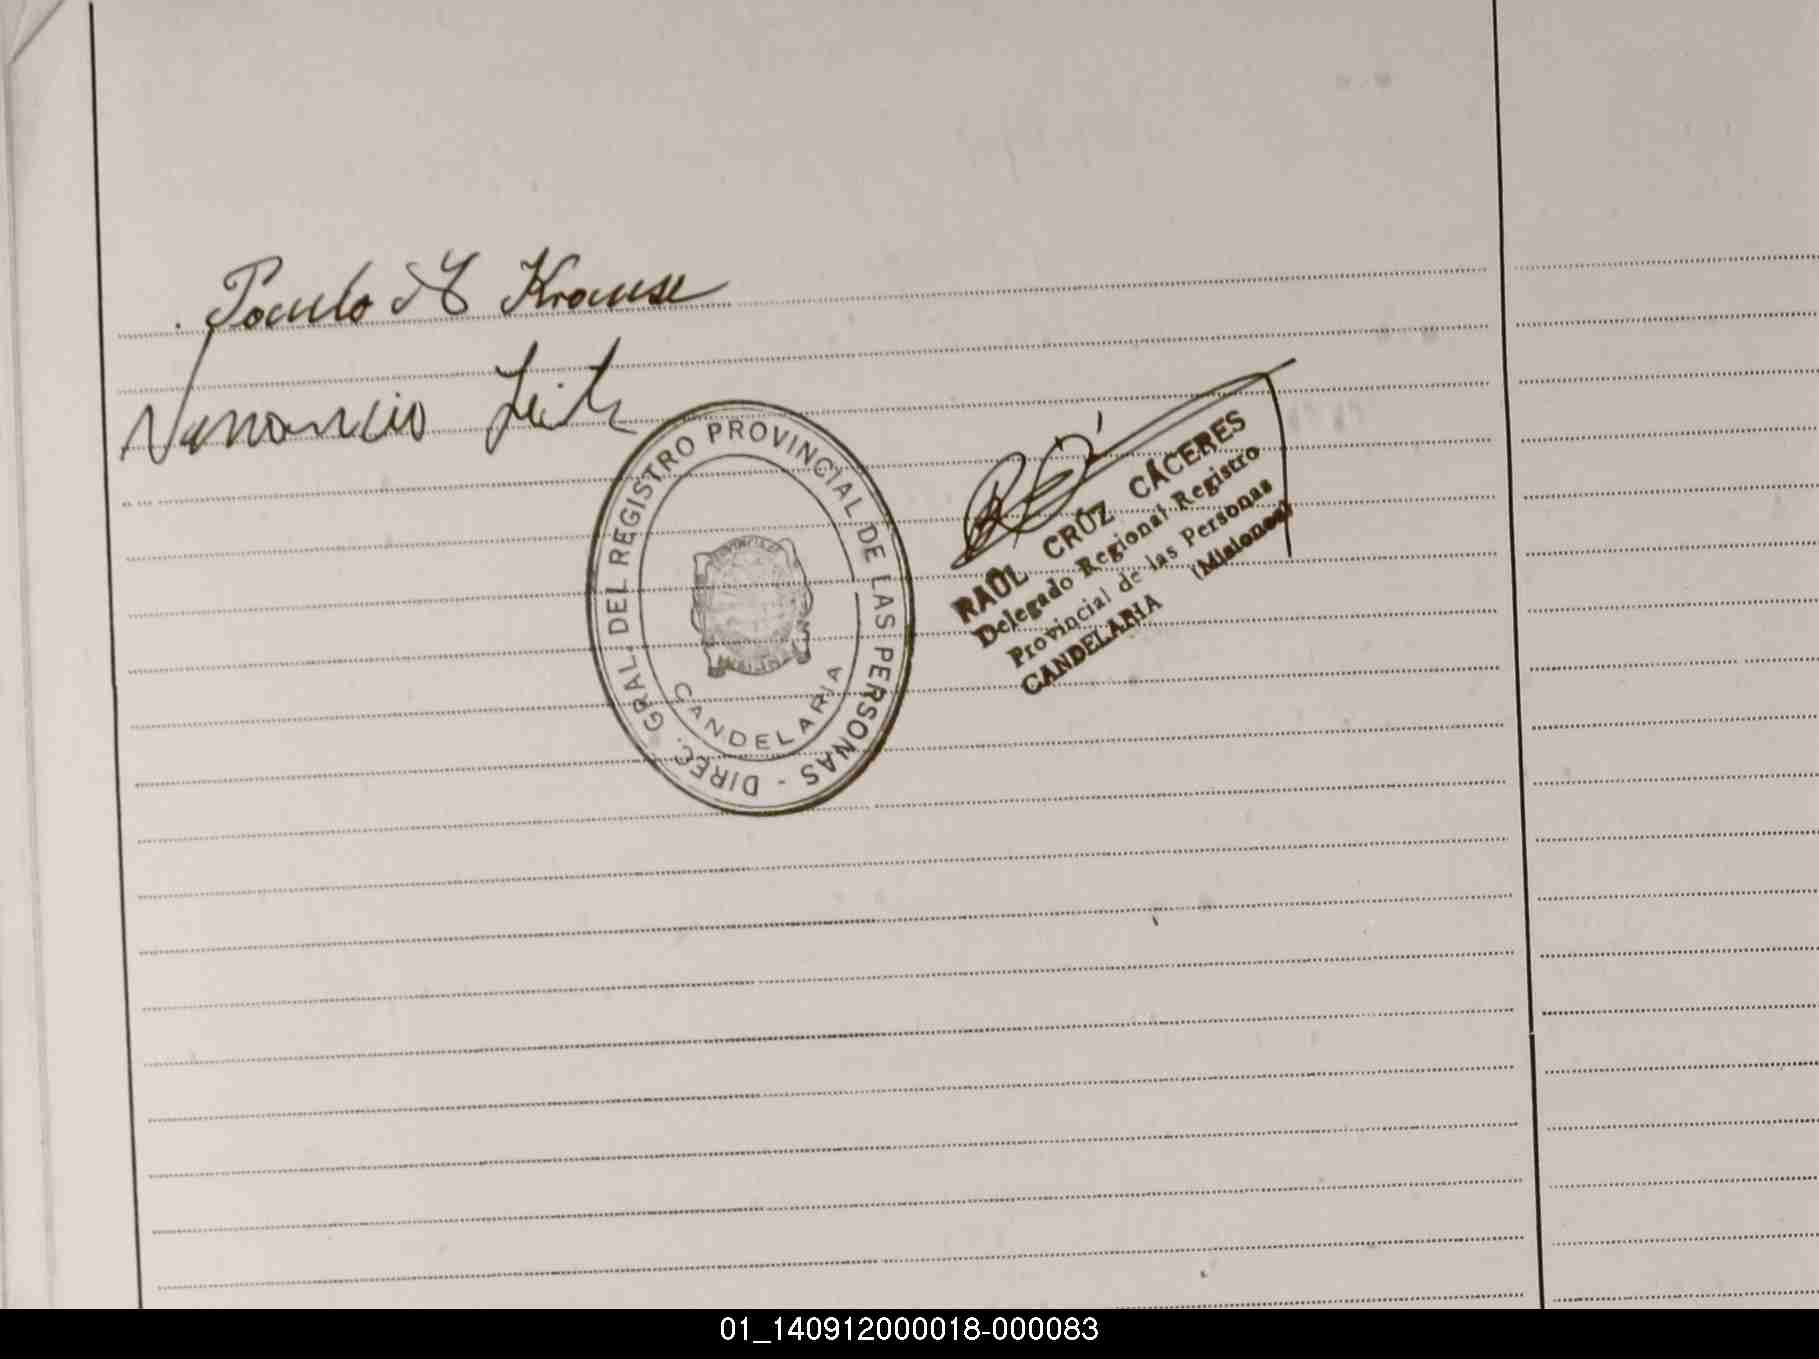 Paulo A Krause
Venancio Leite
DIREC. GRAL. DEL REGISTRO PROVINCIAL DE LAS PERSONAS -
CANDELARIA
RAÚL CRÚZ CÁCERES
Delegado Regional Registro
Provincial de las Personas
CANDELARIA (Misiones)
01_140912000018-000083